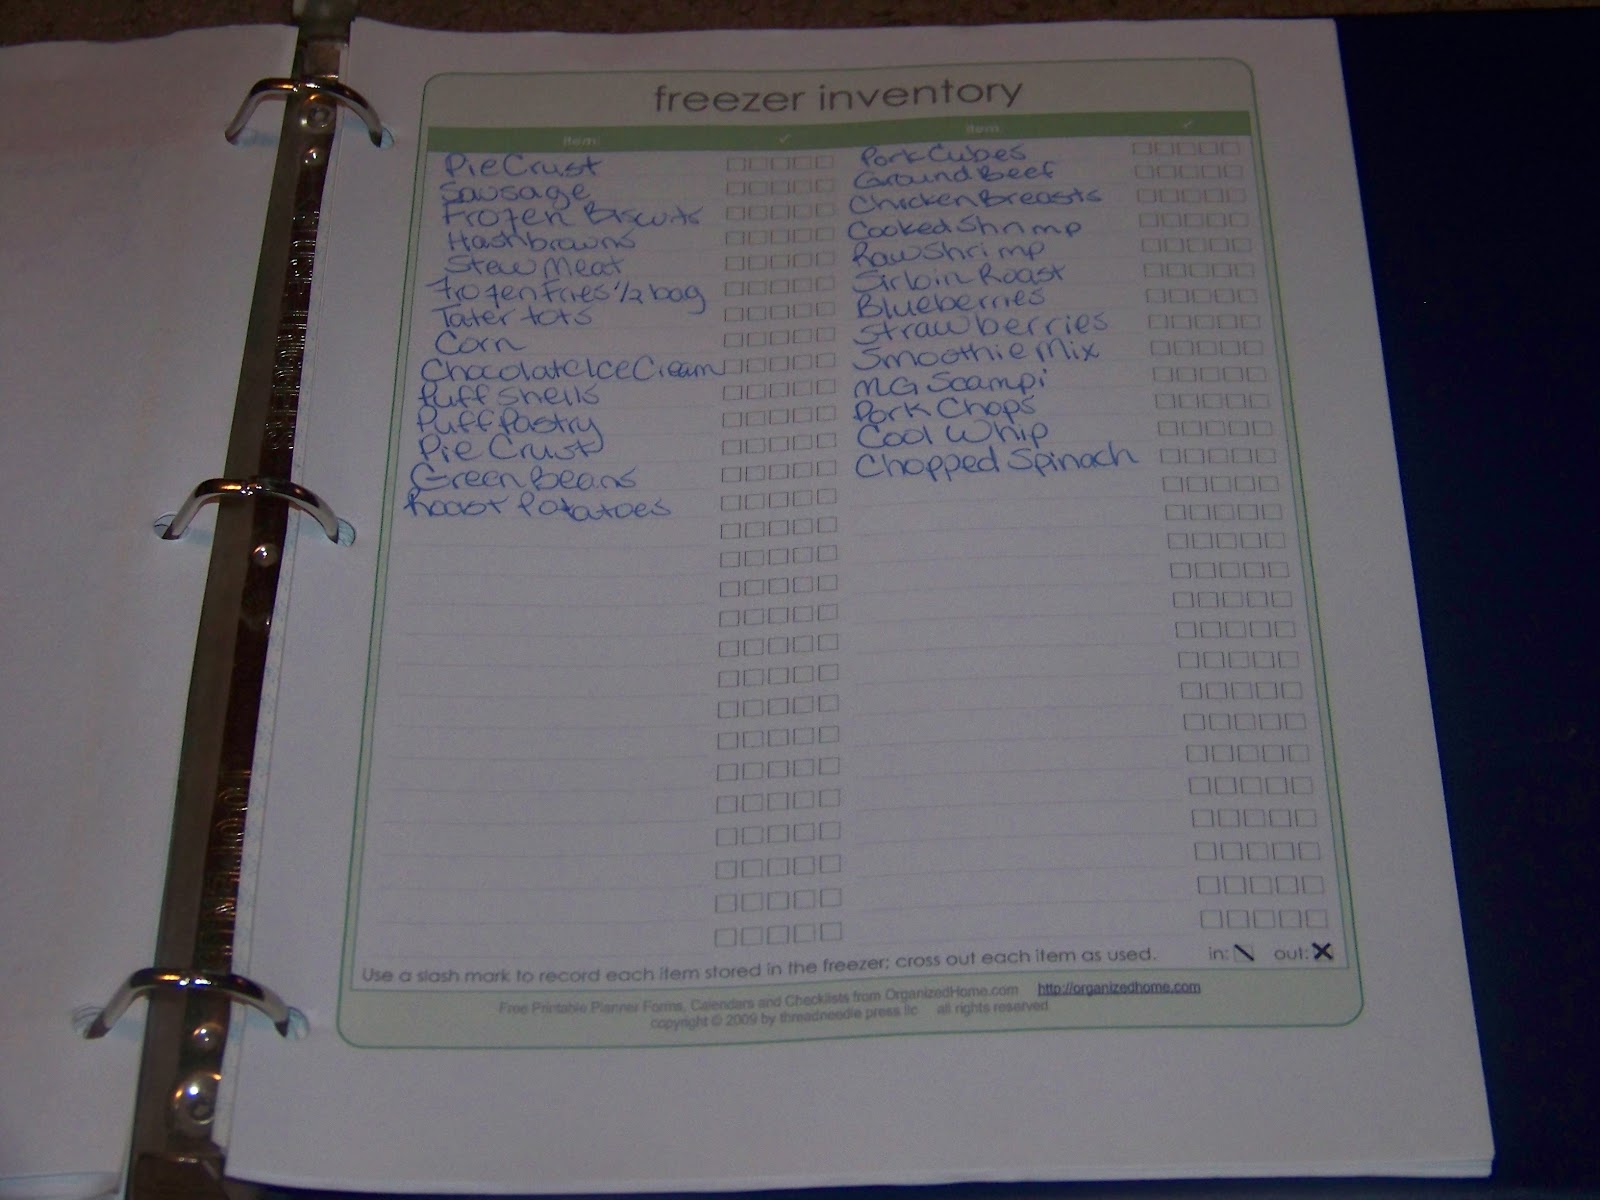 freezer inventory
item:
Pie Crust
Sausage
Frozen Biscuits
Hashbrowns
Stew Meat
Frozen Fries 1/2 bag
Tater tots
Corn
Chocolate Ice Cream
Puff Shells
Puff Pastry
Pie Crust
Green Beans
Roast Potatoes
item:
Pork Cubes
Ground Beef
Chicken Breasts
Cooked Shrimp
Raw Shrimp
Sirloin Roast
Blueberries
Strawberries
Smoothie Mix
MG Scampi
Pork Chops
Cool Whip
Chopped Spinach
Use a slash mark to record each item stored in the freezer; cross out each item as used. in: out:
Free Printable Planner Forms, Calendars and Checklists from OrganizedHome.com http://organizedhome.com
copyright © 2009 by threadneedle press llc all rights reserved